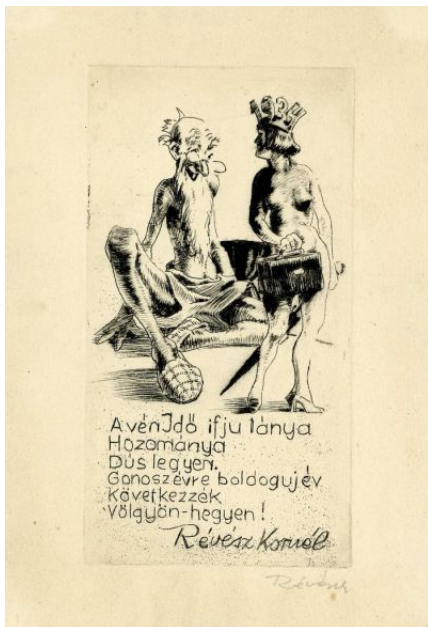 1934
A vén Idő ifju lánya
Hozománya
Dús legyen.
Gonosz évre boldog ujév
Következzék
Völgyön-hegyen!
Révész Kornél
Révész